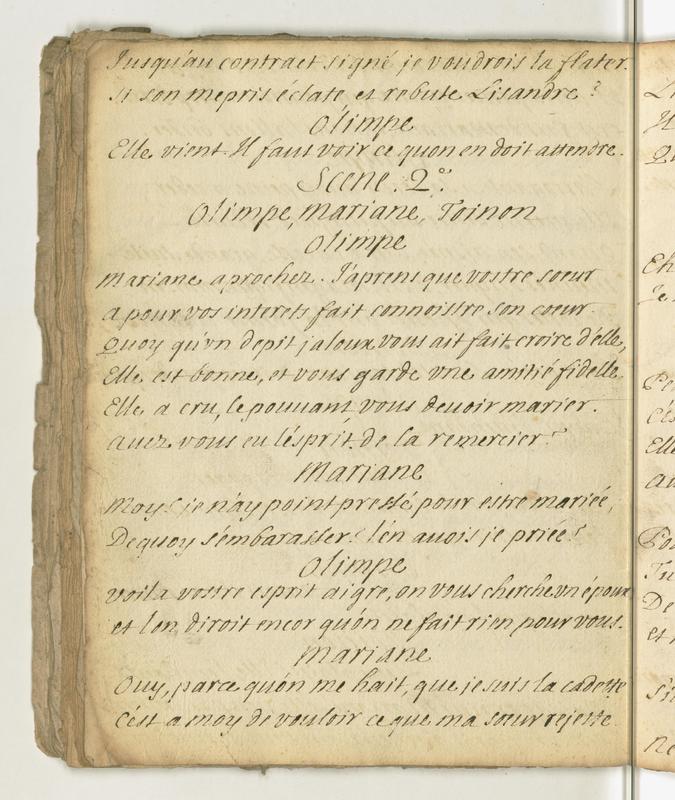 Jusqu'au contract signé je voudrois la flater.
si son mepris éclate et rebute Lisandre?
Olimpe
Elle vient. Il faut voir ce quon en doit attendre.
Scene. 2.e
Olimpe, Mariane, Toinon
Olimpe
Mariane aprochez. J'aprens que vostre soeur
a pour vos interets fait connoistre son coeur.
Quoy qu'vn depit jaloux vous ait fait croire d'élle,
Elle est bonne, et vous garde vne amitié fidelle.
Elle a cru, le pouvant vous devoir marier.
avez vous eu l'ésprit de la remercier?
Mariane
Moy! je n'ay point pressé pour estre mariée,
Dequoy s'émbarasser? l'én avois je priée?
Olimpe
voila vostre esprit aigre, on vous cherche vn époux
et l'on diroit encor qu'ón ne fait rien pour vous.
Mariane
Ouy, parce qu'ón me hait, que je suis la cadette
C'ést a moy de vouloir ce que ma soeur rejette
Elle